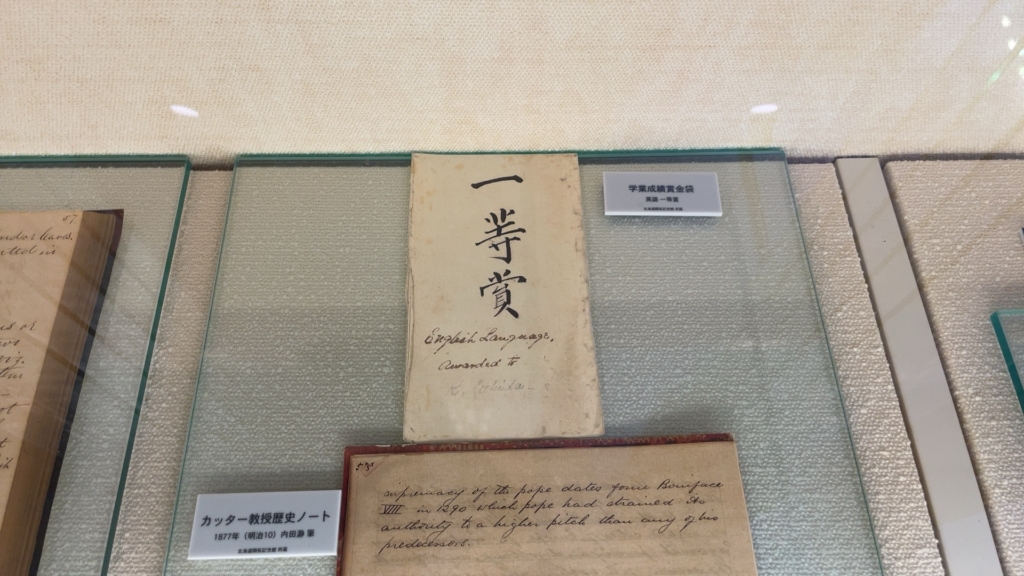 57
ted in
一等賞
English Language,
Awarded to
学業成績賞金袋
英語 一等賞
北海道開拓記念館 所蔵
カッター教授歴史ノート
1877年（明治10）内田瀞 筆
北海道開拓記念館 所蔵
supremacy of the pope dates from Boniface
VIII in 1290 which pope had strained its
authority to a higher pitch than any of his
predecessors.